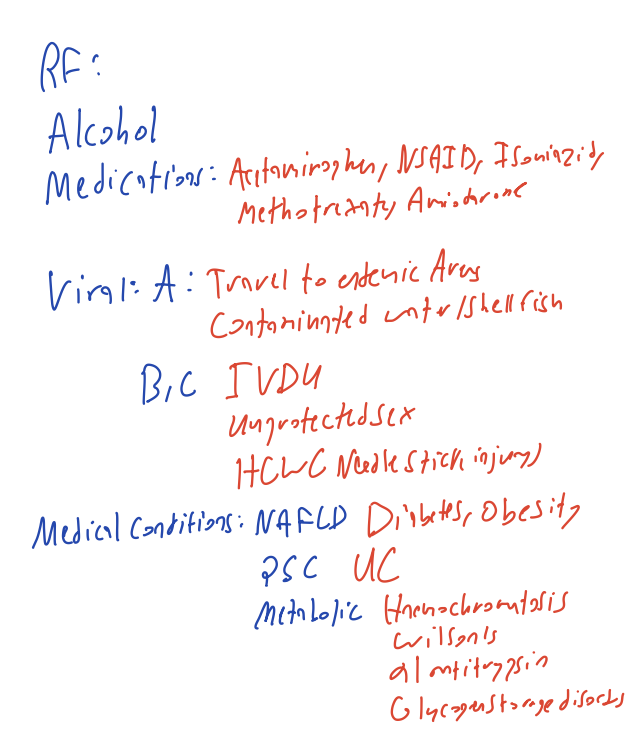 RF:
Alcohol
Medications: Acetaminophen, NSAID, Isoniazid,
Methotrexate, Amiodarone
Viral: A: Travel to endemic Areas
Contaminated water/shellfish
B,C IVDU
Unprotected sex
HCW (Needle stick injury)
Medical Conditions: NAFLD Diabetes, Obesity
PSC UC
Metabolic Haemochromatosis
Wilson's
α1 antitrypsin
Glycogen storage disorders